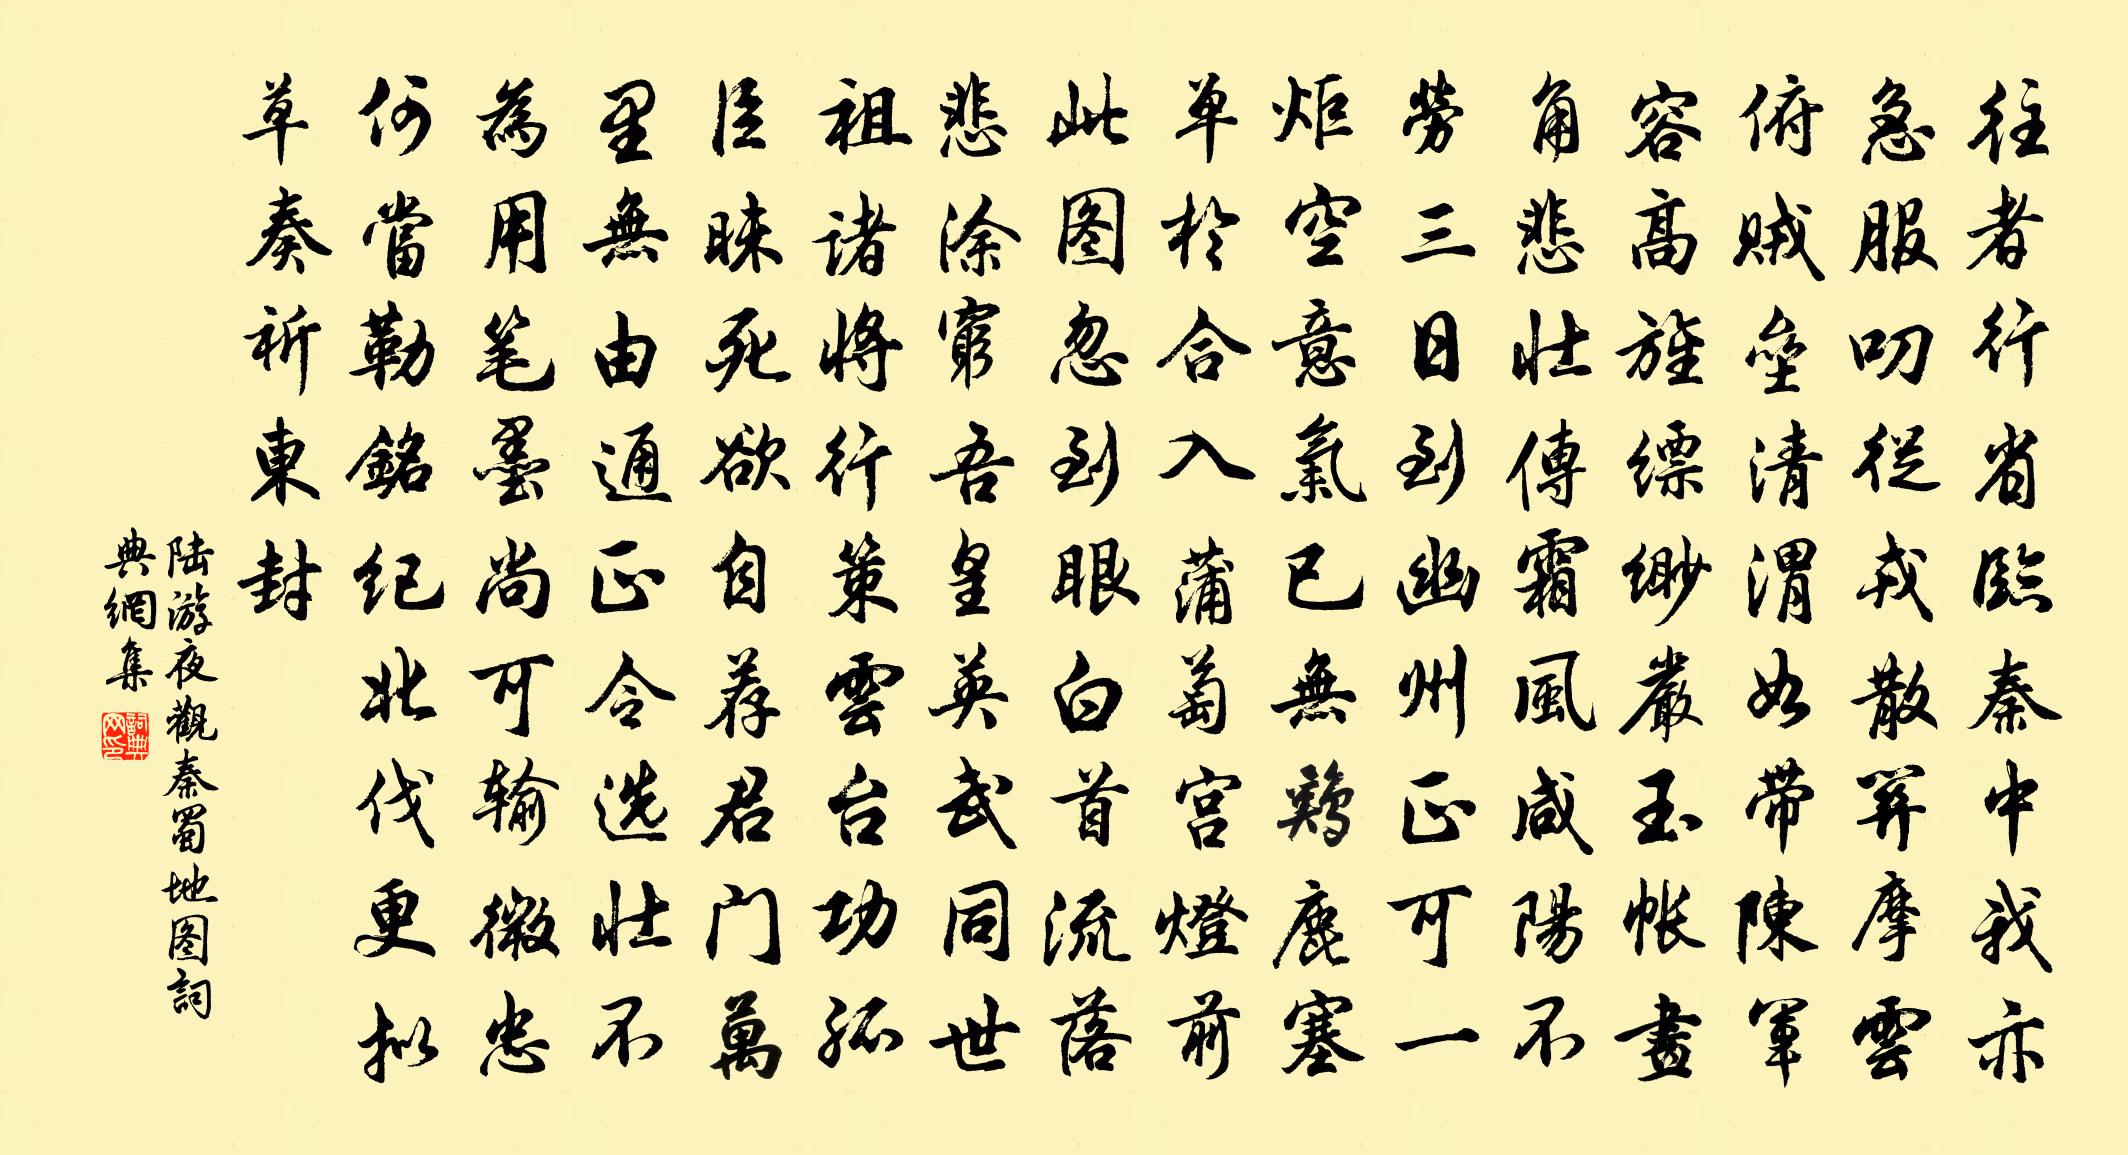 往者行省臨秦中我亦
急服叨從戎散關摩雲
俯賊壘清渭如帶陳軍
容高旌縹緲嚴玉帳畫
角悲壯傳霜風咸陽不
勞三日到幽州正可一
炬空意氣已無鷄鹿塞
單於合入蒲萄宮燈前
此图忽到眼白首流落
悲涂窮吾皇英武同世
祖诸將行策雲台功孤
臣昧死欲自荐君门萬
里無由通正令选壯不
為用笔墨尚可输微忠
何當勒銘纪北伐更拟
草奏祈東封
陆游夜觀秦蜀地图詞
典網集
詞典网印